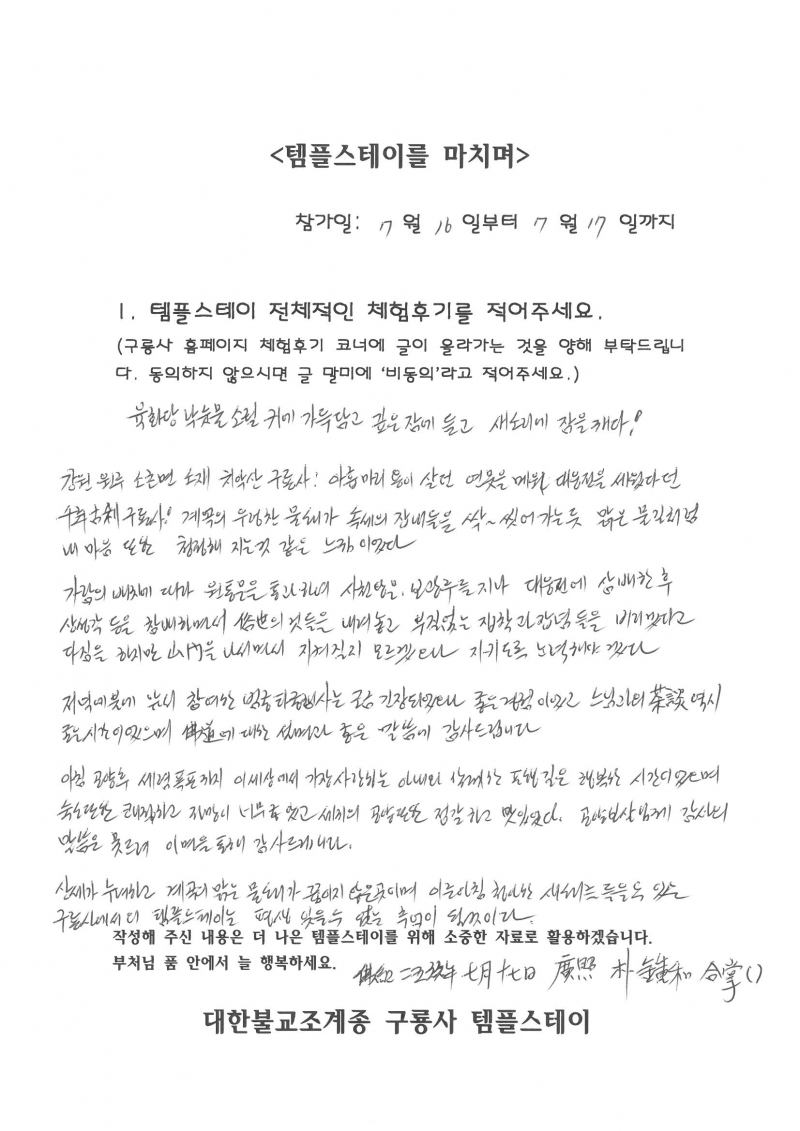 <템플스테이를 마치며>
참가일: 7 월 16 일부터 7 월 17 일까지
1. 템플스테이 전체적인 체험후기를 적어주세요.
(구룡사 홈페이지 체험후기 코너에 글이 올라가는 것을 양해 부탁드립니
다. 동의하지 않으시면 글 말미에 '비동의'라고 적어주세요.)
육화당 낙숫물 소릴 귀에 가득담고 깊은잠에 들고 새소리에 잠을깨다!
강원 원주 소초면 소재 치악산 구룡사! 아홉마리 용이 살던 연못을 메워 대웅전을 세웠다던
千年古刹 구룡사! 계곡의 우렁찬 물소리가 속세의 잡내들을 싹~ 씻어가는듯 맑은 물길처럼
내마음 또한 청정해 지는것 같은 느낌이었다
가람의 배치에 따라 원통문을 통과하여 사천왕문, 보광루를 지나 대웅전에 삼배한 후
삼성각 등을 참배하면서 俗世의 것들을 내려놓고 부질없는 집착과 잡념들을 버리겠다고
다짐을 하지만 山門을 나서면서 지켜질지 모르겠으나 지키도록 노력해야겠다
저녁예불에 앞서 참여한 범종타종행사는 조금 긴장되었으나 좋은경험이었고 스님과의 茶談 역시
좋은시간이었으며 佛道에 대한 설명과 좋은 말씀에 감사드립니다
아침 공양후 세렴폭포까지 이세상에서 가장사랑하는 아내와 함께한 포행길은 행복한 시간이었으며
숙소또한 쾌적하고 전망이 너무좋았고 세끼의 공양또한 정갈하고 맛있었다. 공양보살님께 감사의
말씀을 못드려 이면을통해 감사드립니다.
산세가 수려하고 계곡의 맑은 물소리가 끊이지 않은곳이며 이른아침 청아한 새소리를 들을수 있는
구룡사에서의 템플스테이는 평생 잊을수 없는 추억이 될것이다.
작성해 주신 내용은 더 나은 템플스테이를 위해 소중한 자료로 활용하겠습니다.
부처님 품 안에서 늘 행복하세요.
七月十七日 廣照 朴鍾和 合掌()
대한불교조계종 구룡사 템플스테이